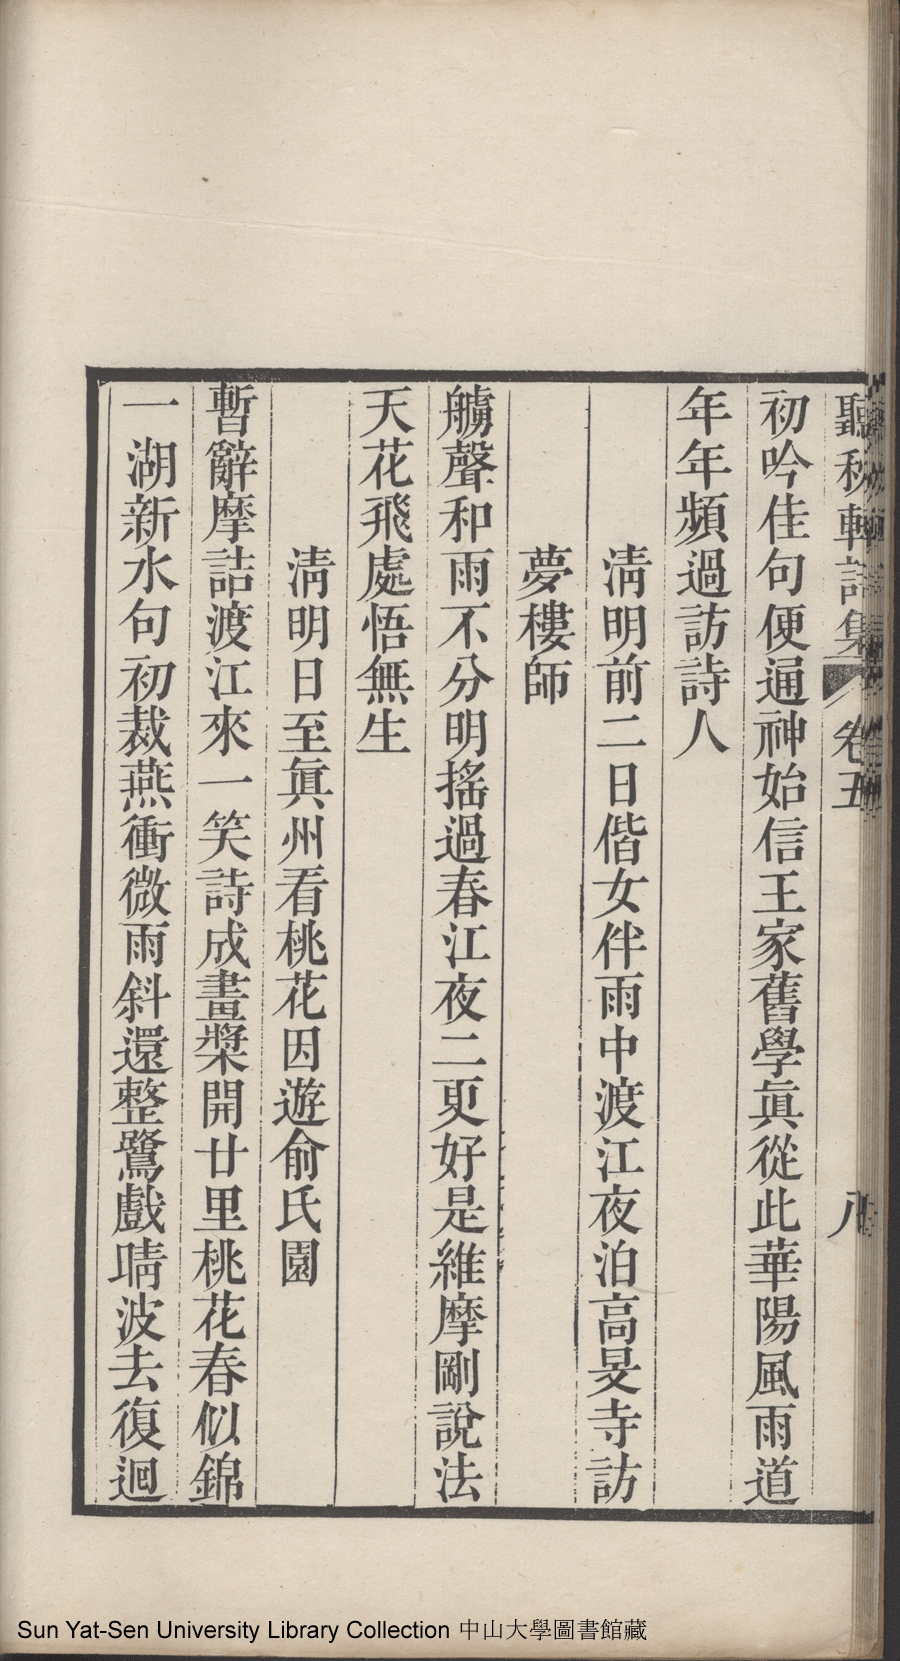 聽秋軒詩集 卷五 八
初吟佳句便通神始信王家舊學眞從此華陽風雨道
年年頻過訪詩人
淸明前二日偕女伴雨中渡江夜泊高旻寺訪
夢樓師
艣聲和雨不分明搖過春江夜二更好是維摩剛說法
天花飛處悟無生
淸明日至眞州看桃花因遊俞氏園
暫辭摩詰渡江來一笑詩成畫槳開廿里桃花春似錦
一湖新水句初裁燕衝微雨斜還整鷺戲晴波去復迴
Sun Yat-Sen University Library Collection 中山大學圖書館藏